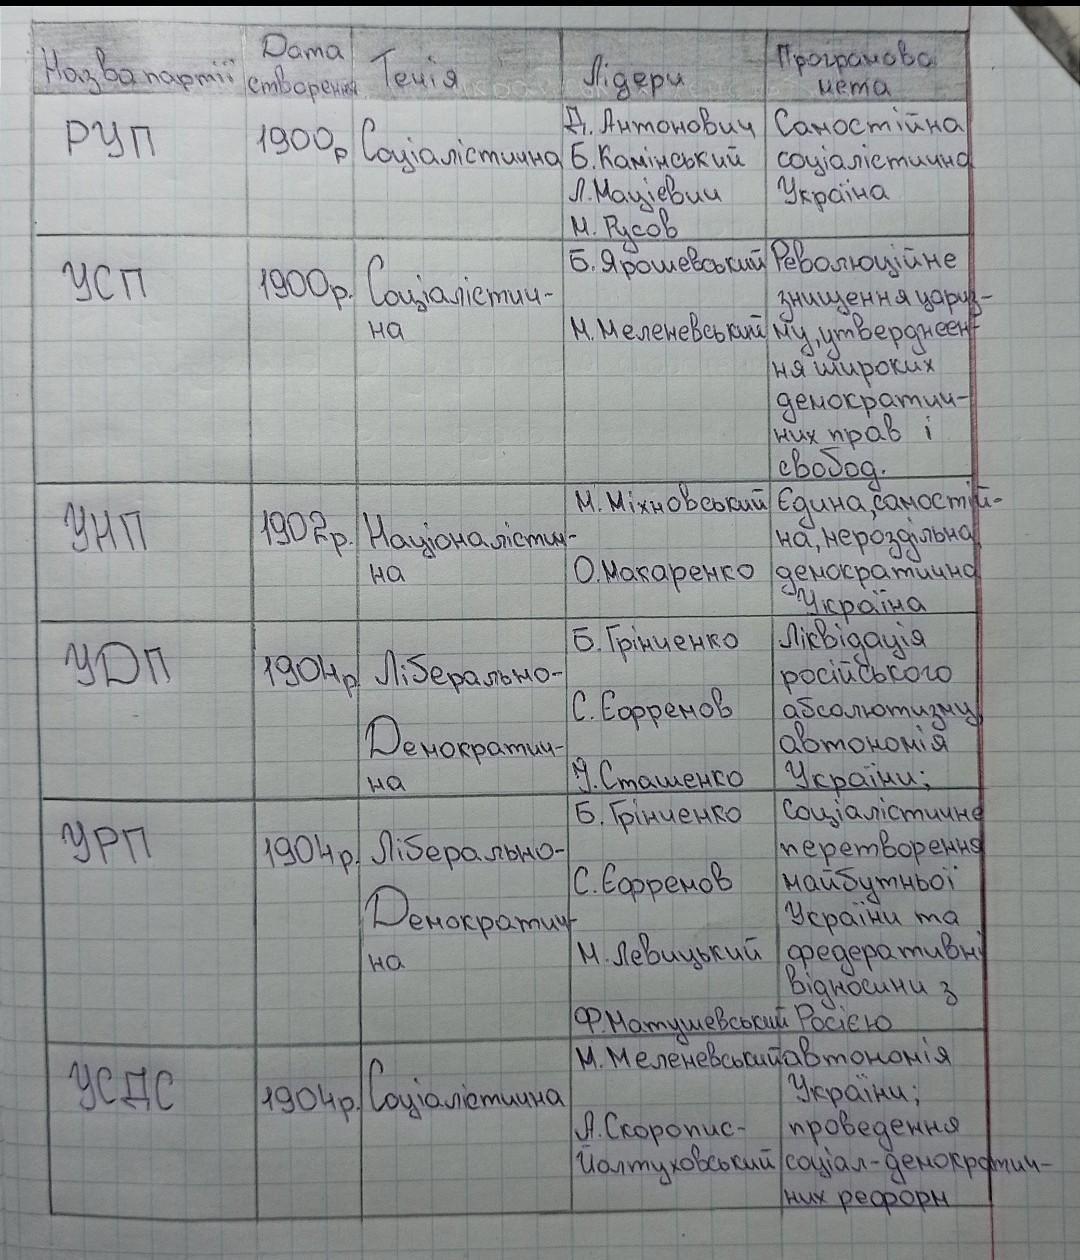 Назва партії
Дата
створення
Течія
Лідери
Програмова
мета
РУП
1900р
Соціалістична
Д. Антонович
Б. Камінський
Л. Мацієвич
М. Русов
Самостійна
соціалістична
Україна
УСП
1900р.
Соціалістич-
на
Б. Ярошевський
М. Меленевський
Революційне
знищення цариз-
му, утверджен-
ня широких
демократич-
них прав і
свобод.
УНП
1902р.
Націоналістич-
на
М. Міхновський
О. Макаренко
Єдина, самостій-
на, нероздільна
демократична
Україна
УДП
1904р
Ліберально-
Демократич-
на
Б. Грінченко
С. Єфремов
Сташенко
Ліквідація
російського
абсолютизму,
автономія
України;
УРП
1904р.
Ліберально-
Демократич-
на
Б. Грінченко
С. Єфремов
М. Левицький
Ф. Матушевський
Соціалістичне
перетворення
майбутньої
України та
федеративні
відносини з
Росією
УСДС
1904р.
Соціалістична
М. Меленевський
А. Скоропис-
Йолтуховський
автономія
України;
проведення
соціал-демократич-
них реформ